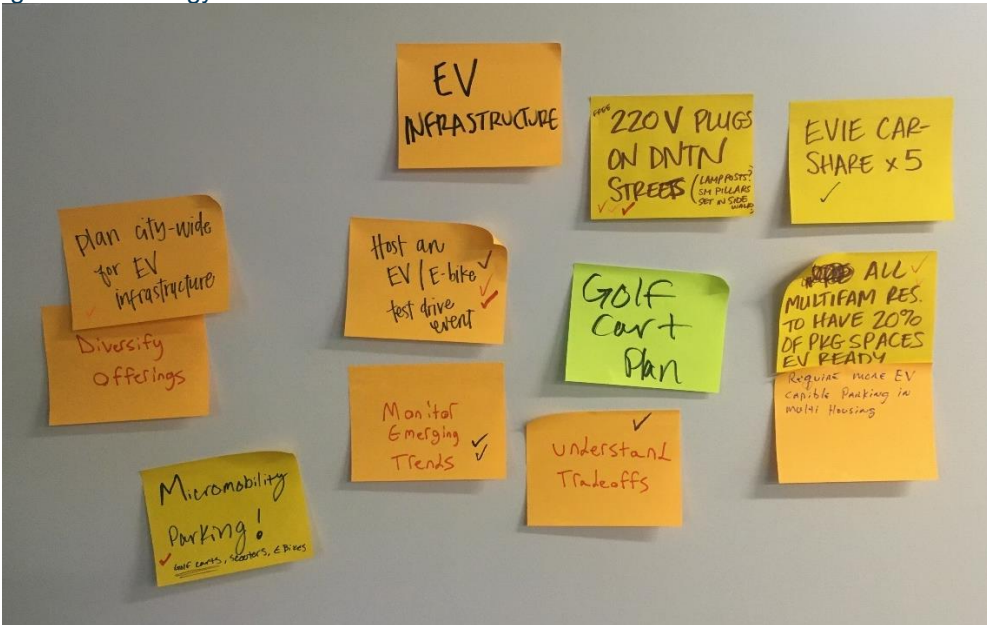 EV
INFRASTRUCTURE
220V PLUGS
ON DNTN
STREETS (LAMP POSTS?
SM PILLARS
SET IN SIDE
WALKS)
EVIE CAR-
SHARE x 5
Plan city-wide
for EV
infrastructure
Diversify
Offerings
Host an
EV/E-bike
test drive
event
Golf
Cart
Plan
ALL
MULTIFAM RES.
TO HAVE 20%
OF PKG SPACES
EV READY
Require more EV
capible Parking in
multi Housing
Monitor
Emerging
Trends
Understand
Tradeoffs
Micromobility
Parking!
Golf carts, scooters, E Bikes